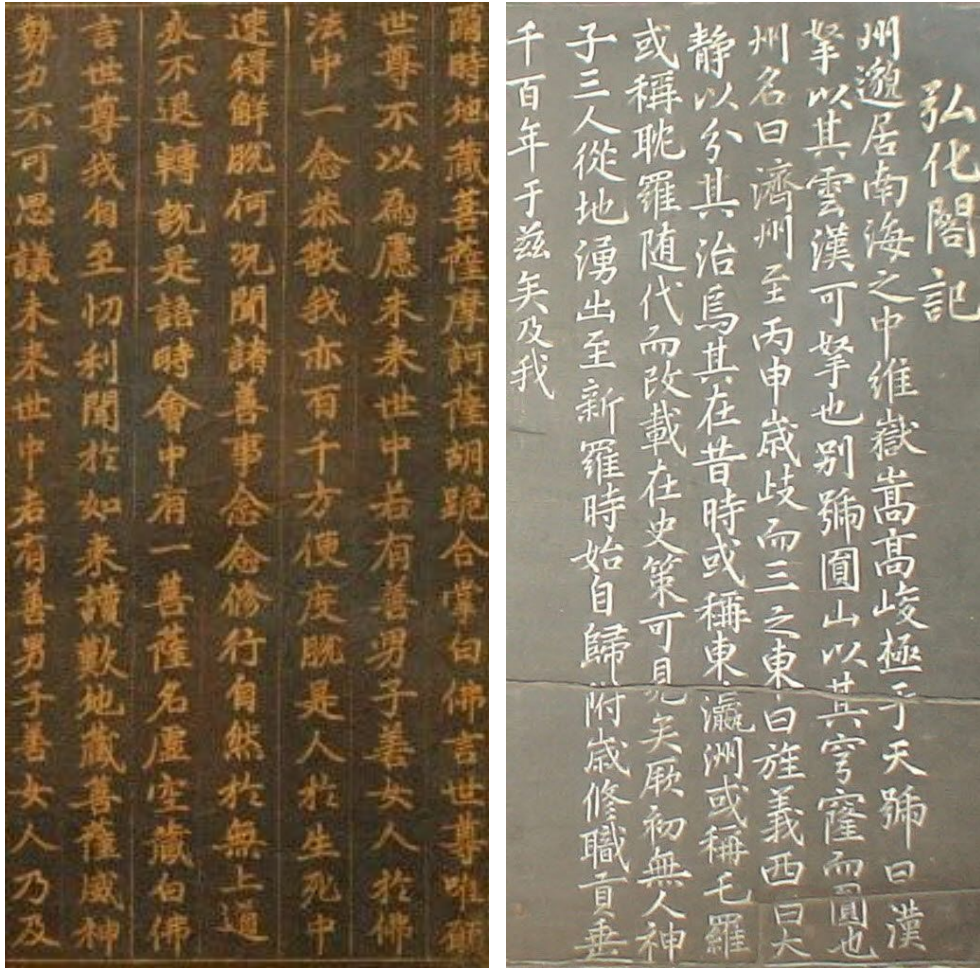 爾時地藏菩薩摩訶薩胡跪合掌白佛言世尊唯願
世尊不以為慮未来世中若有善男子善女人於佛
法中一念恭敬我亦百千方便度脫是人於生死中
速得解脫何況聞諸善事念念修行自然於無上道
永不退轉說是語時會中有一菩薩名虛空藏白佛
言世尊我自至忉利聞於如来讚歎地藏菩薩威神
勢力不可思議未来世中若有善男子善女人乃及
弘化閣記
州邈居南海之中維嶽嵩髙峻極于天號曰漢
拏以其雲漢可拏也别號圓山以其穹窿而圓也
州名曰濟州至丙申歲歧而三之東曰旌義西曰大
静以分其治焉其在昔時或稱東瀛洲或稱乇羅
或稱耽羅随代而改載在史策可見矣厥初無人神
子三人從地湧出至新羅時始自歸附歲修職貢垂
千百年于兹矣及我